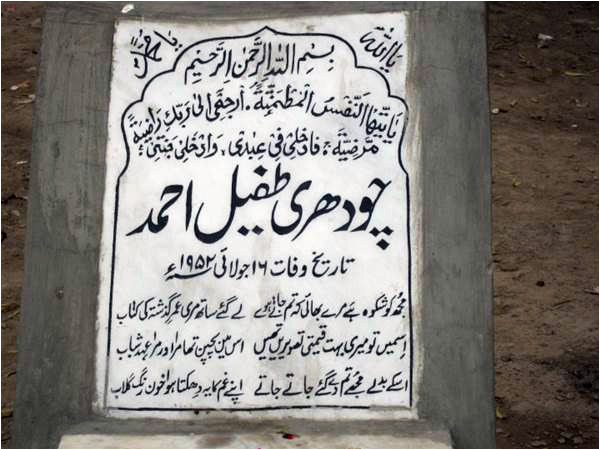 یا اللہ یا محمدؐ
بسم اللہ الرحمٰن الرحیم
یٰاَیَّتُهَا النَّفْسُ الْمُطْمَئِنَّةُ۔ ارْجِعِیْ اِلٰی رَبِّكِ رَاضِیَةً
مَّرْضِیَّةً۔ فَادْخُلِیْ فِیْ عِبٰدِیْ۔ وَادْخُلِیْ جَنَّتِیْ
چودھری طفیل احمد
تاریخ وفات ۱۶ جولائی ۱۹۵۲ء
مجھ کو شکوہ ہے مرے بھائی کہ تم جاتے ہوئے لے گئے ساتھ مری عمرِ گذشتہ کی کتاب
اسمیں تو میری بہت قیمتی تصویریں تھیں اس میں بچپن تھا مرا اور مرا عہدِ شباب
اسکے بدلے مجھے تم دے گئے جاتے جاتے اپنے غم کا یہ دھکتا ہوا خون رنگ گلاب